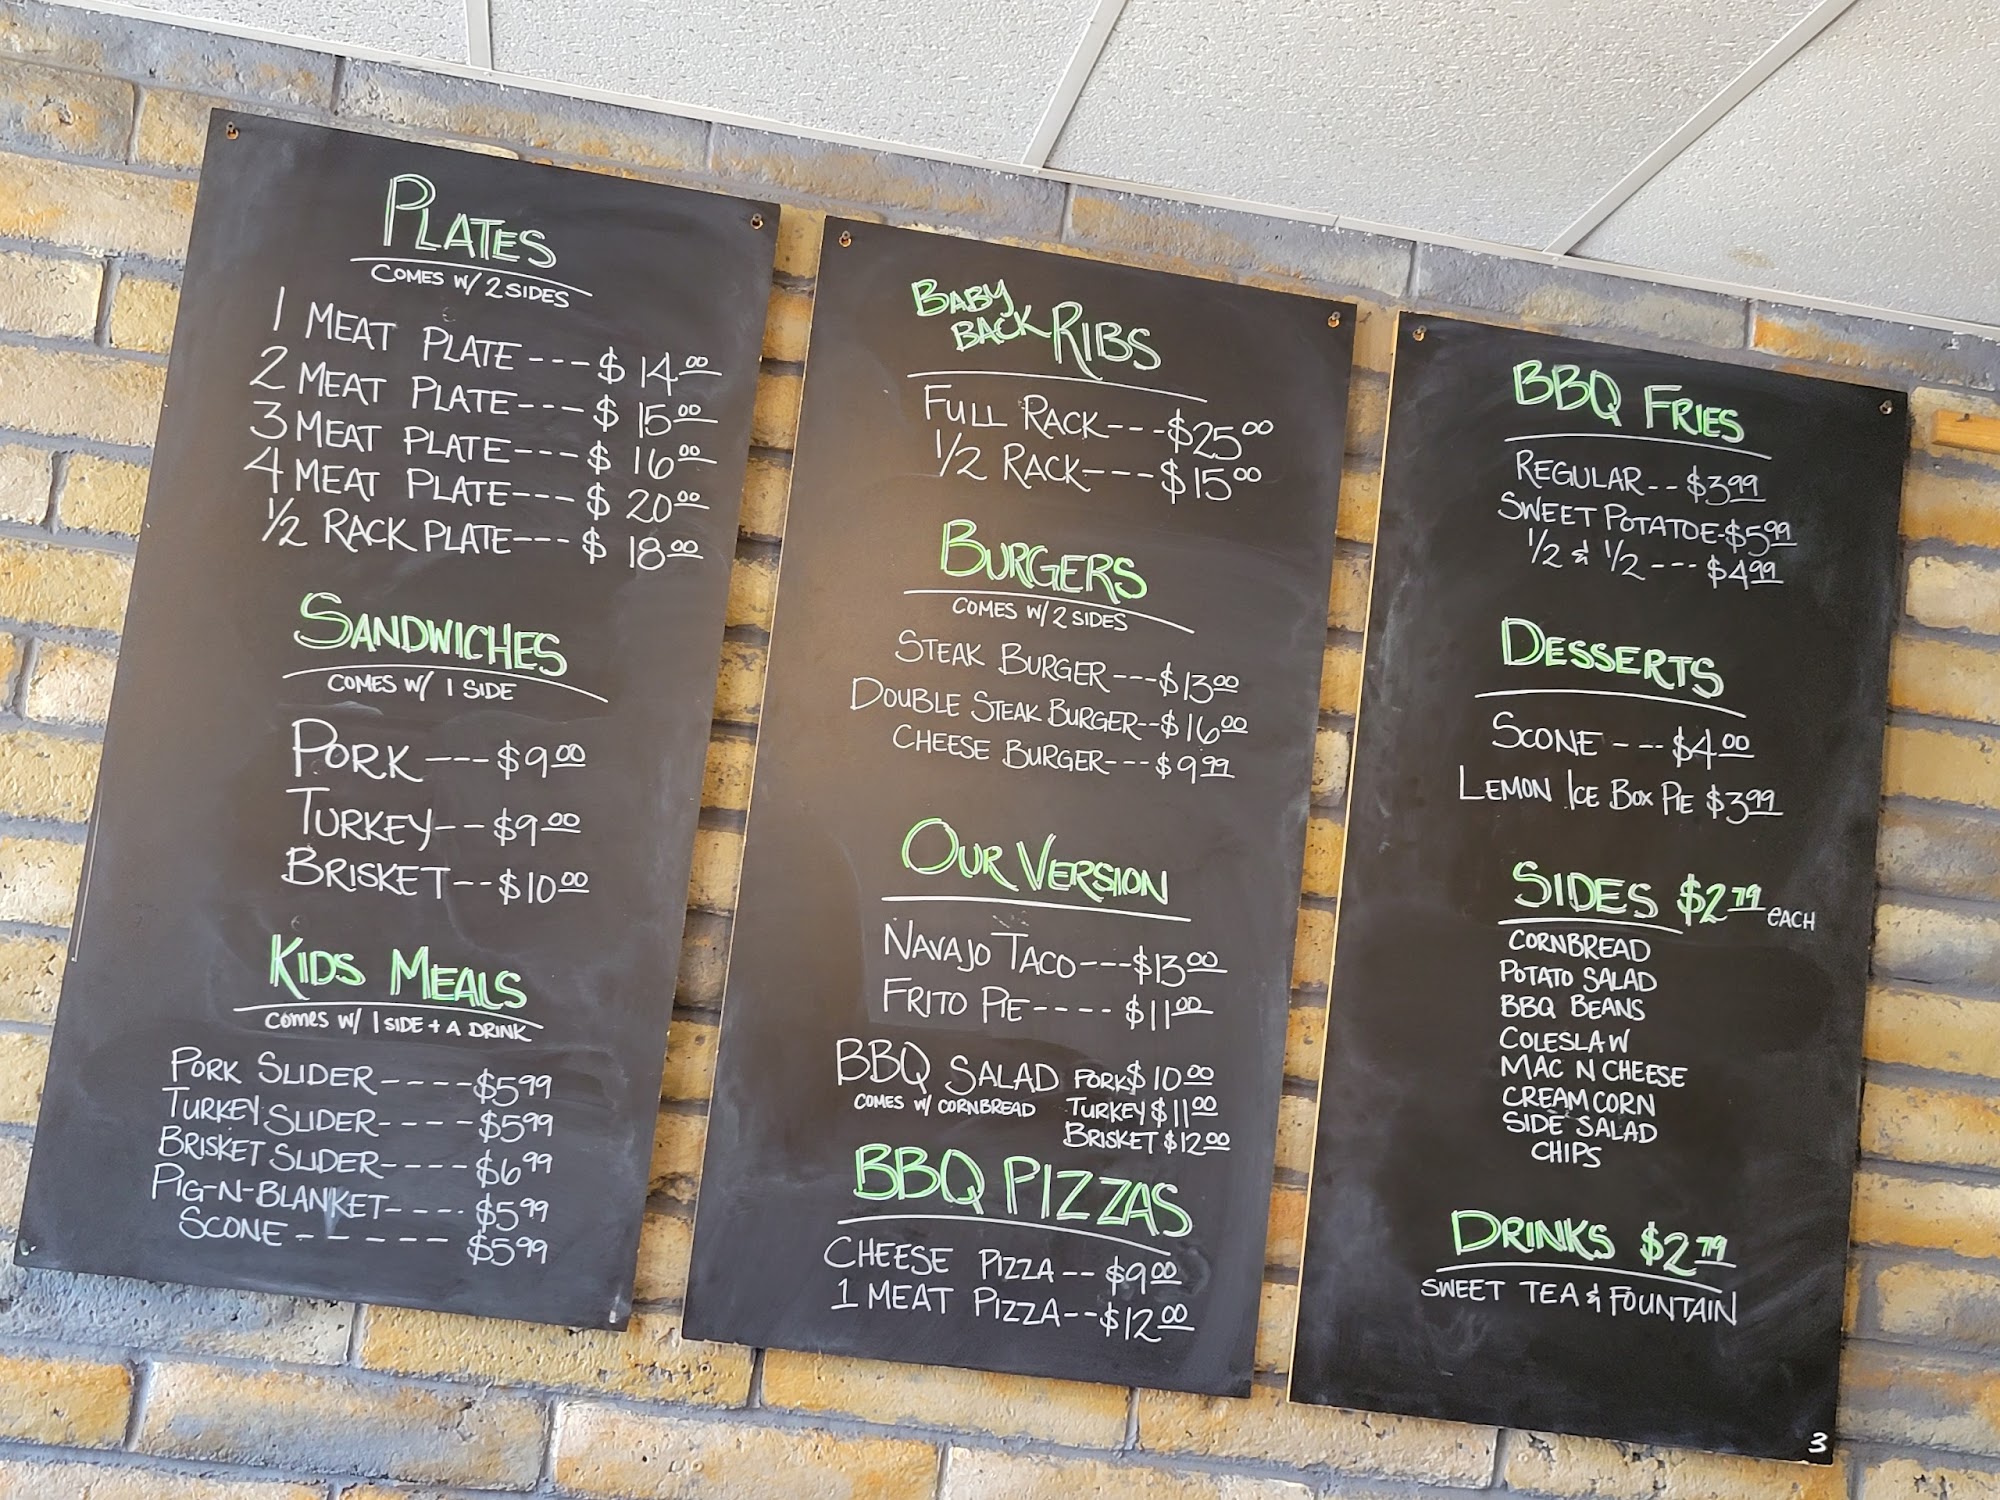 PLATES
COMES W/ 2 SIDES
1 MEAT PLATE --- $ 14.00
2 MEAT PLATE --- $ 15.00
3 MEAT PLATE --- $ 16.00
4 MEAT PLATE --- $ 20.00
1/2 RACK PLATE --- $ 18.00
SANDWICHES
COMES W/ 1 SIDE
PORK --- $9.00
TURKEY -- $9.00
BRISKET -- $10.00
KIDS MEALS
COMES W/ 1 SIDE + A DRINK
PORK SLIDER ---- $5.99
TURKEY SLIDER ---- $5.99
BRISKET SLIDER ---- $6.99
PIG-N-BLANKET ---- $5.99
SCONE ------ $5.99
BABY BACK RIBS
FULL RACK --- $25.00
1/2 RACK --- $15.00
BURGERS
COMES W/ 2 SIDES
STEAK BURGER --- $13.00
DOUBLE STEAK BURGER -- $16.00
CHEESE BURGER --- $9.99
OUR VERSION
NAVAJO TACO --- $13.00
FRITO PIE ---- $11.00
BBQ SALAD PORK $10.00
COMES W/ CORNBREAD TURKEY $11.00
BRISKET $12.00
BBQ PIZZAS
CHEESE PIZZA -- $9.00
1 MEAT PIZZA -- $12.00
BBQ FRIES
REGULAR -- $3.99
SWEET POTATOE - $5.99
1/2 & 1/2 --- $4.99
DESSERTS
SCONE --- $4.00
LEMON ICE BOX PIE $3.99
SIDES $2.79 EACH
CORNBREAD
POTATO SALAD
BBQ BEANS
COLESLAW
MAC N CHEESE
CREAM CORN
SIDE SALAD
CHIPS
DRINKS $2.79
SWEET TEA & FOUNTAIN
3